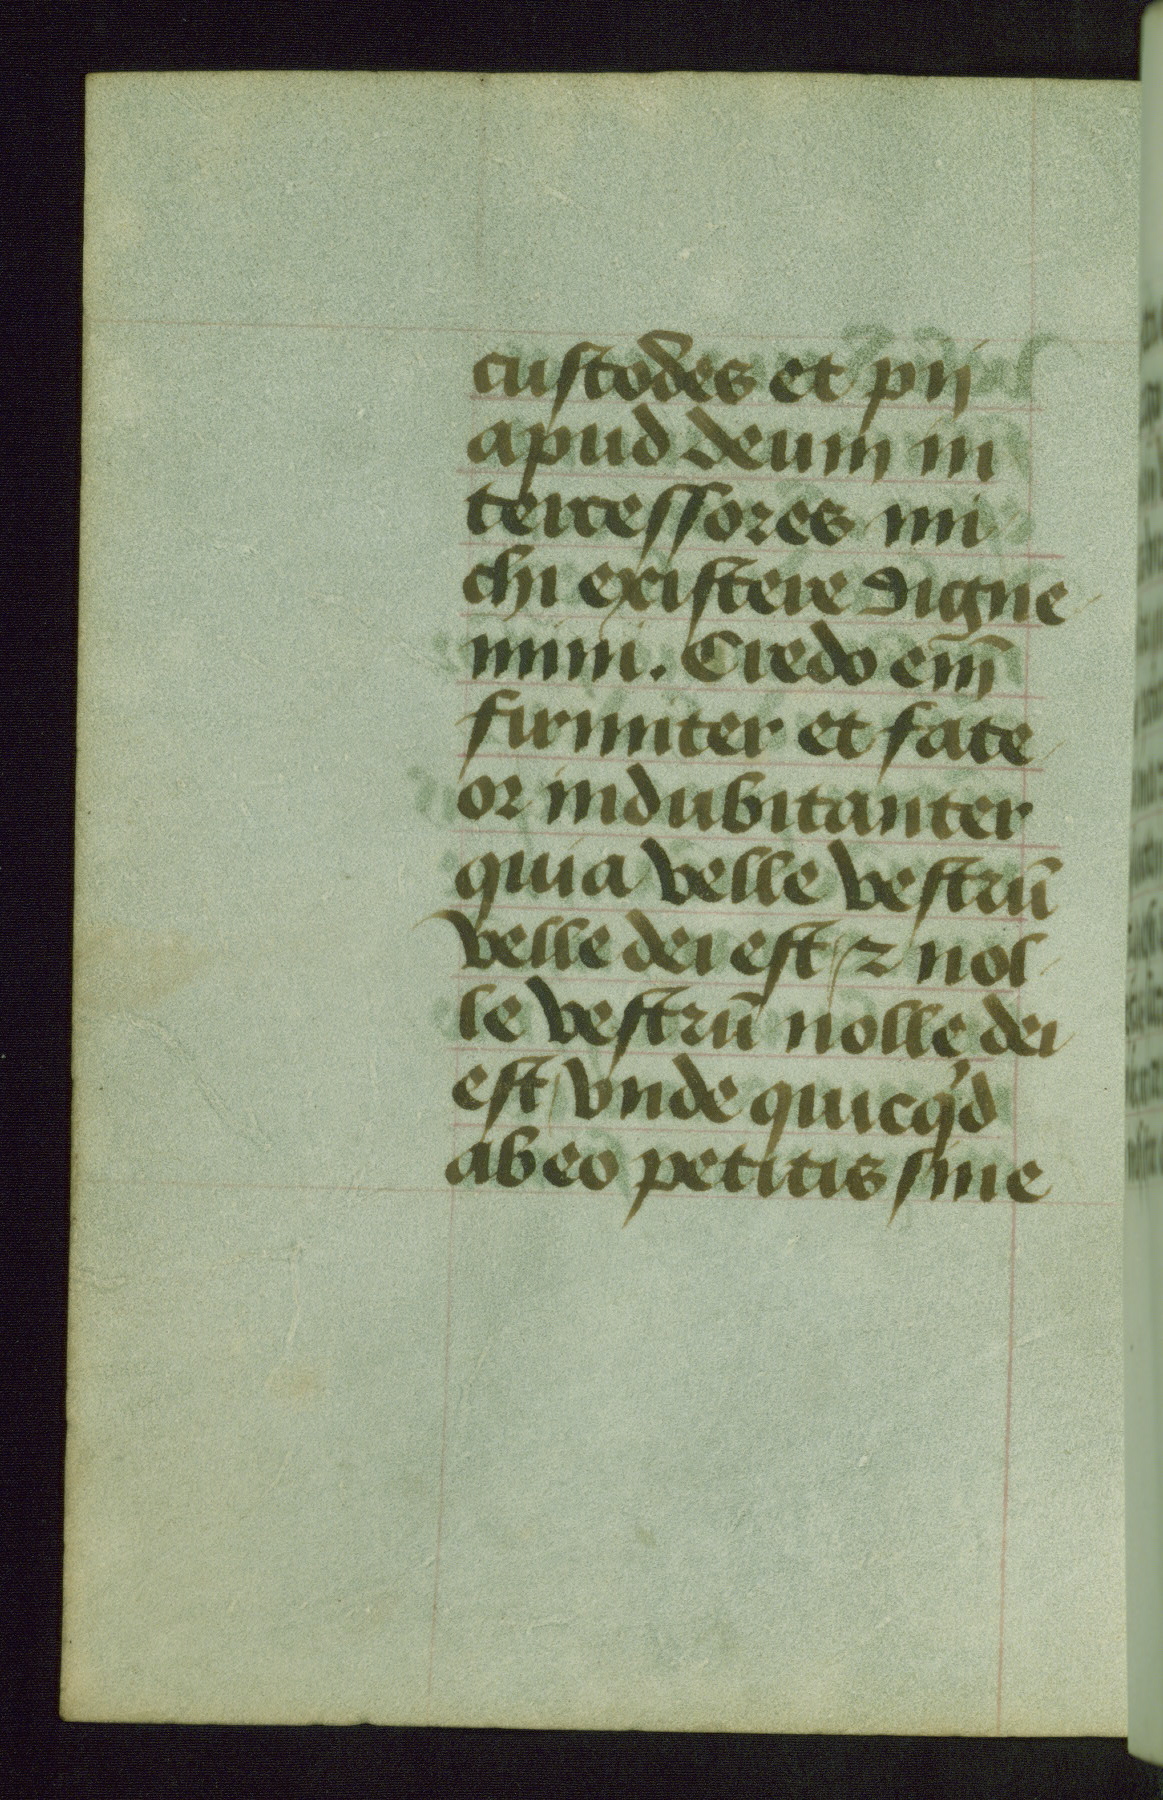 custodes et pij
apud deum in
tercessores mi
chi existere digne
mini. Credo em̄
firmiter et fate
or indubitanter
quia velle vestrū
velle dei est / ⁊ nol
le vestrū nolle dei
est / vnde quicq'd
ab eo petitis sine